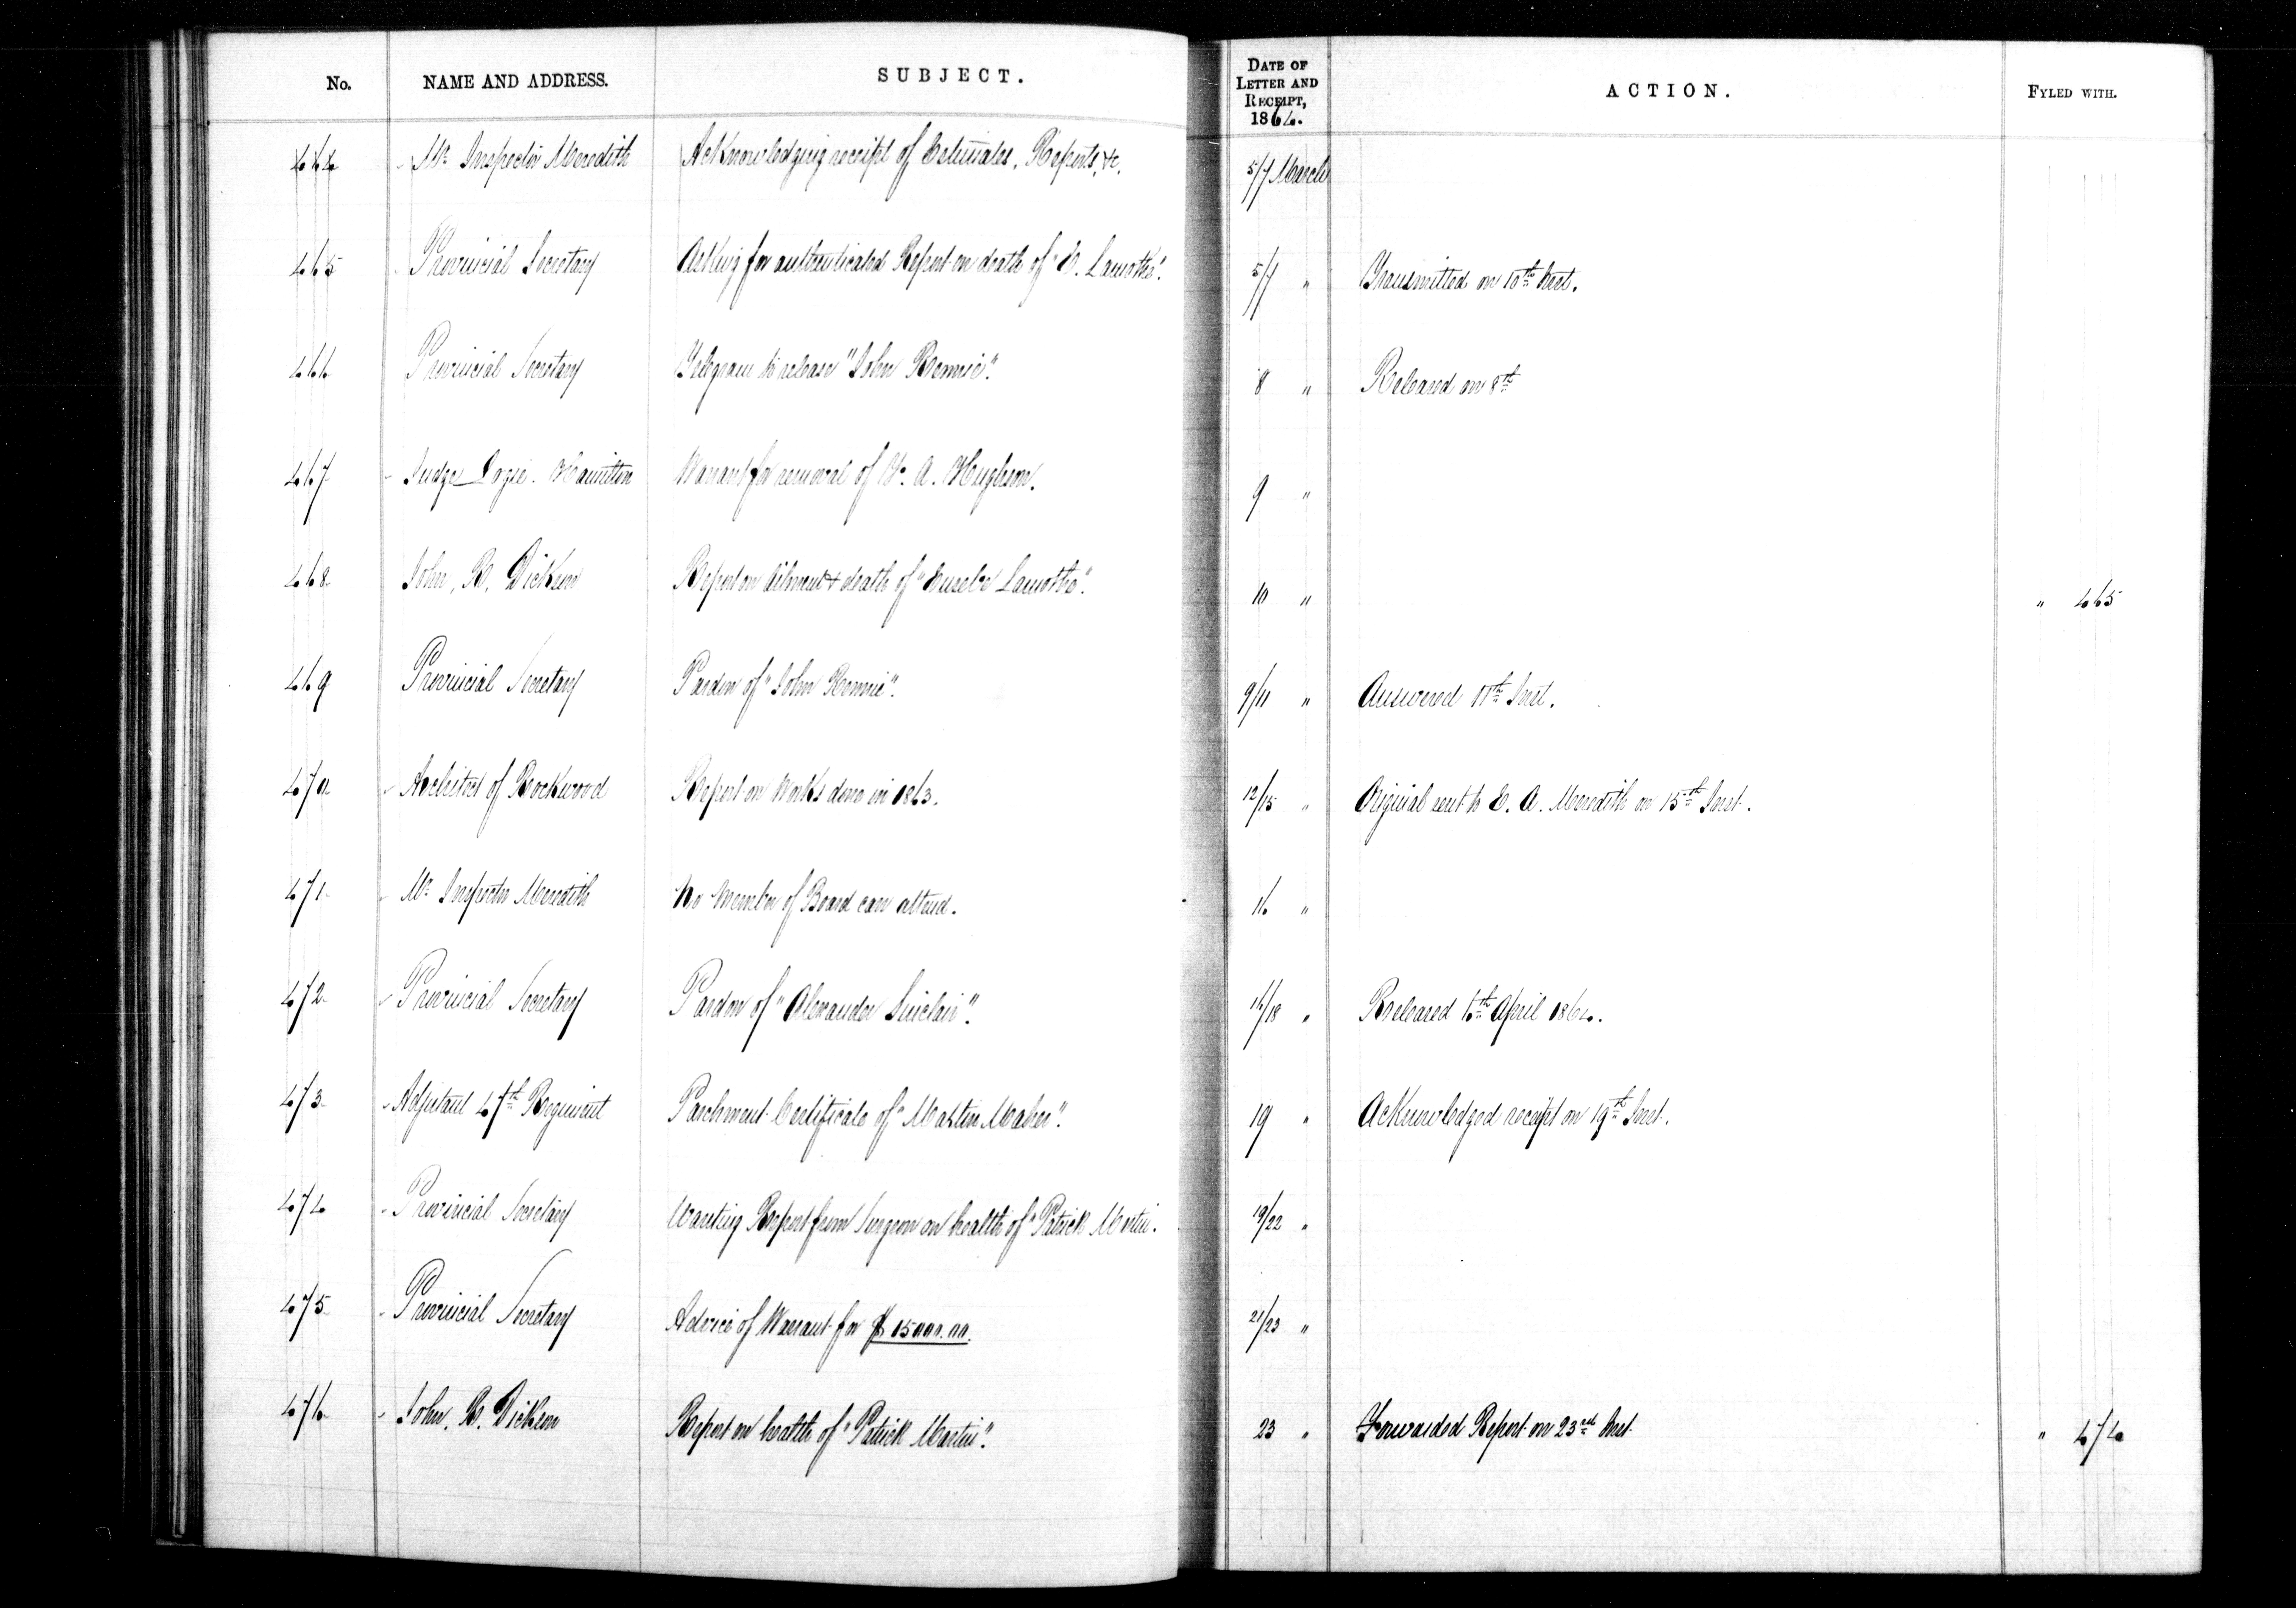 No. NAME AND ADDRESS. SUBJECT. DATE OF LETTER AND RECEIPT, 1864. ACTION. FYLED WITH.
464 Mr. Inspector Meredith Acknowledging receipt of Estimates, Reports, &c. 5/7 March
465 Provincial Secretary Asking for authenticated Report on death of "E. Lamothe". 5/7 " Transmitted on 10th Inst.
466 Provincial Secretary Telegram to release "John Rennie". 8 " Released on 8th
467 Judge Logie. Hamilton Warrant for removal of A. Hughson. 9 "
468 John, R, Dickson Report on Ailment & death of "Eusebe Lamothe". 10 " " 465
469 Provincial Secretary Pardon of "John Rennie". 9/11 " Answered 11th Inst.
470 Architect of Rockwood Report on Works done in 1863. 12/15 " Original sent to E. A. Meredith on 15th Inst.
471 Mr. Inspector Meredith No Member of Board can attend. 16 "
472 Provincial Secretary Pardon of "Alexander Sinclair". 16/18 " Released 6th April 1864.
473 Adjutant 47th Regiment Parchment Certificate of "Martin Maher". 19 " Acknowledged receipt on 19th Inst.
474 Provincial Secretary Wanting Report from Surgeon on health of "Patrick Martin. 19/22 "
475 Provincial Secretary Advice of Warrant for $15000.00. 21/23 "
476 John. R. Dickson Report on health of "Patrick Martin". 23 " Forwarded Report on 23rd Inst. " 474